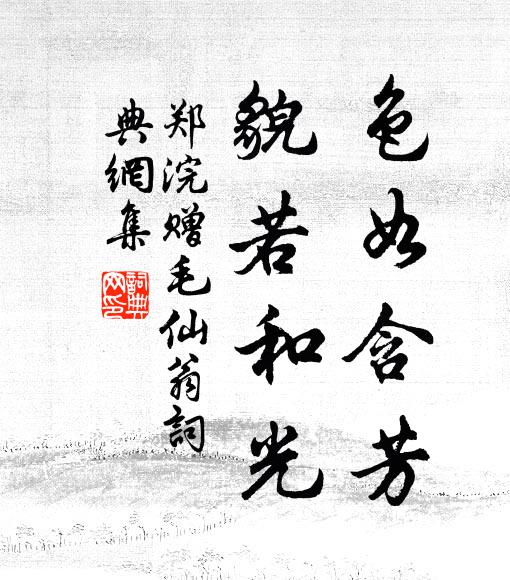 色如含芳
貌若和光
郑浣赠毛仙翁詞
典網集
詞典
网印